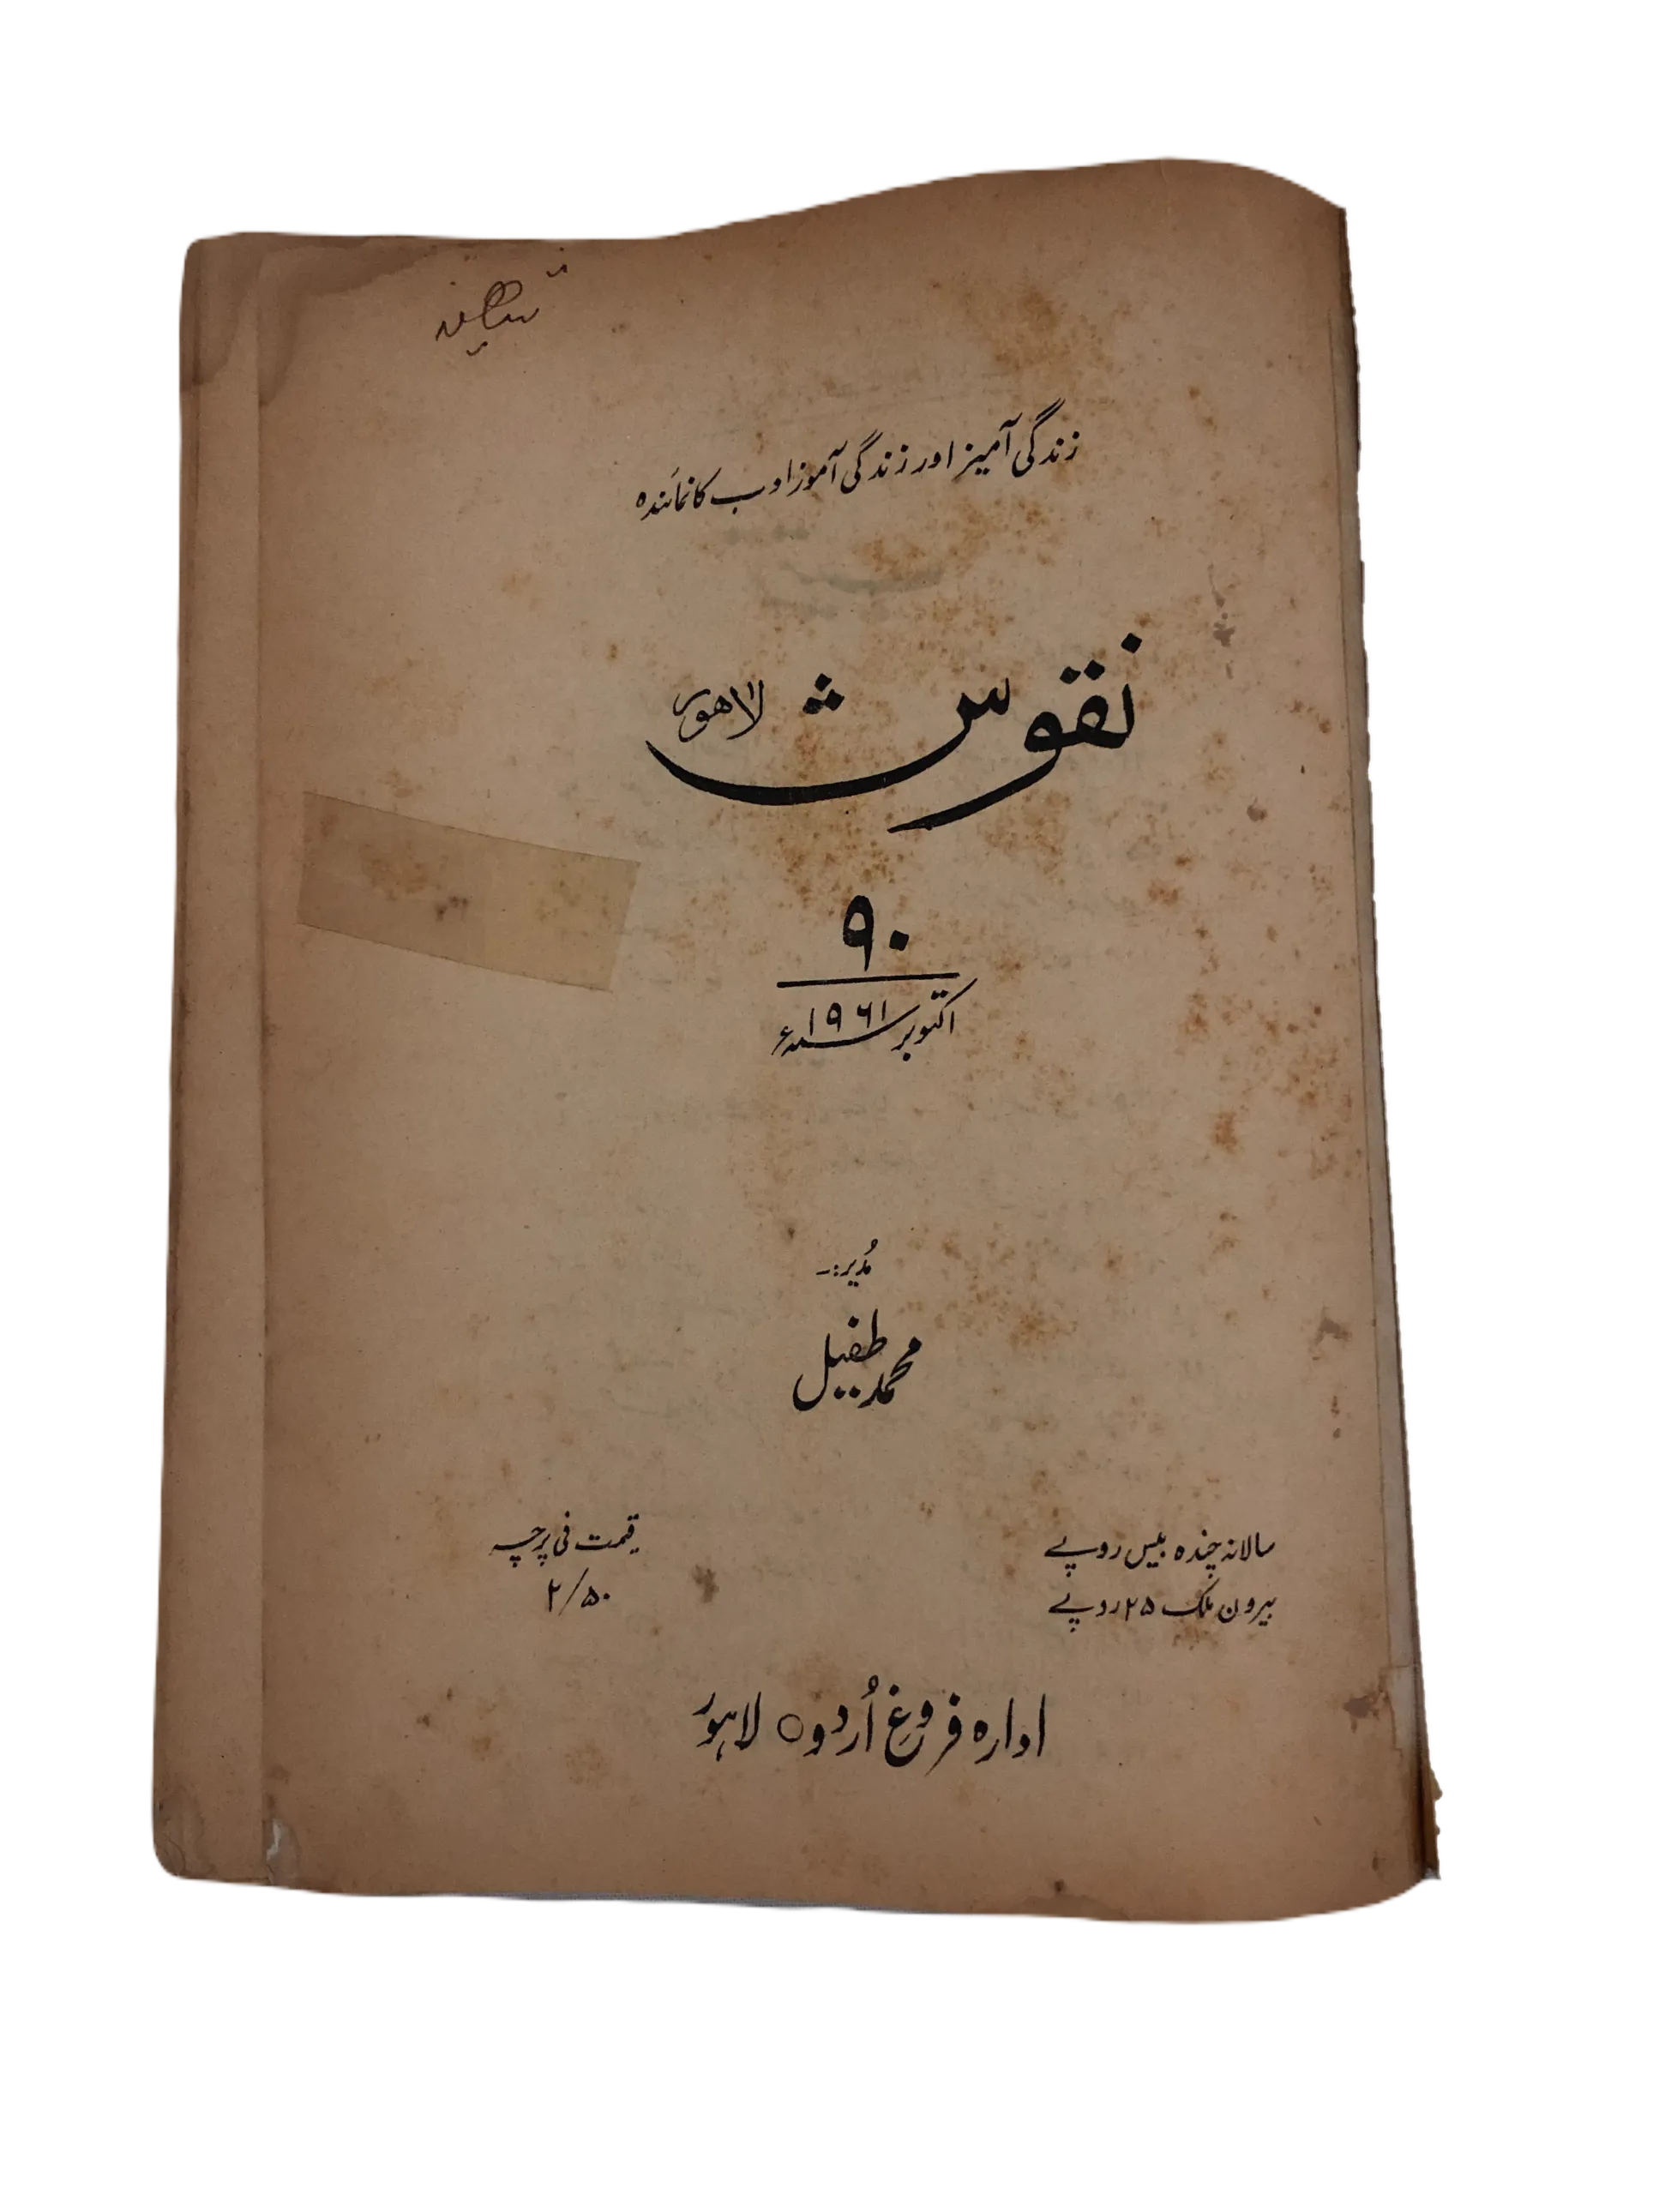 زندگی آمیز اور زندگی آموز ادب کا نمائندہ
نقوش لاہور
۹۰
اکتوبر ۱۹۶۱ء
مُدیر:۔
محمد طفیل
سالانہ چندہ بیس روپے
بیرون ملک ۲۵ روپے
قیمت فی پرچہ
۲/۵۰
ادارہ فروغِ اُردو ○ لاہور